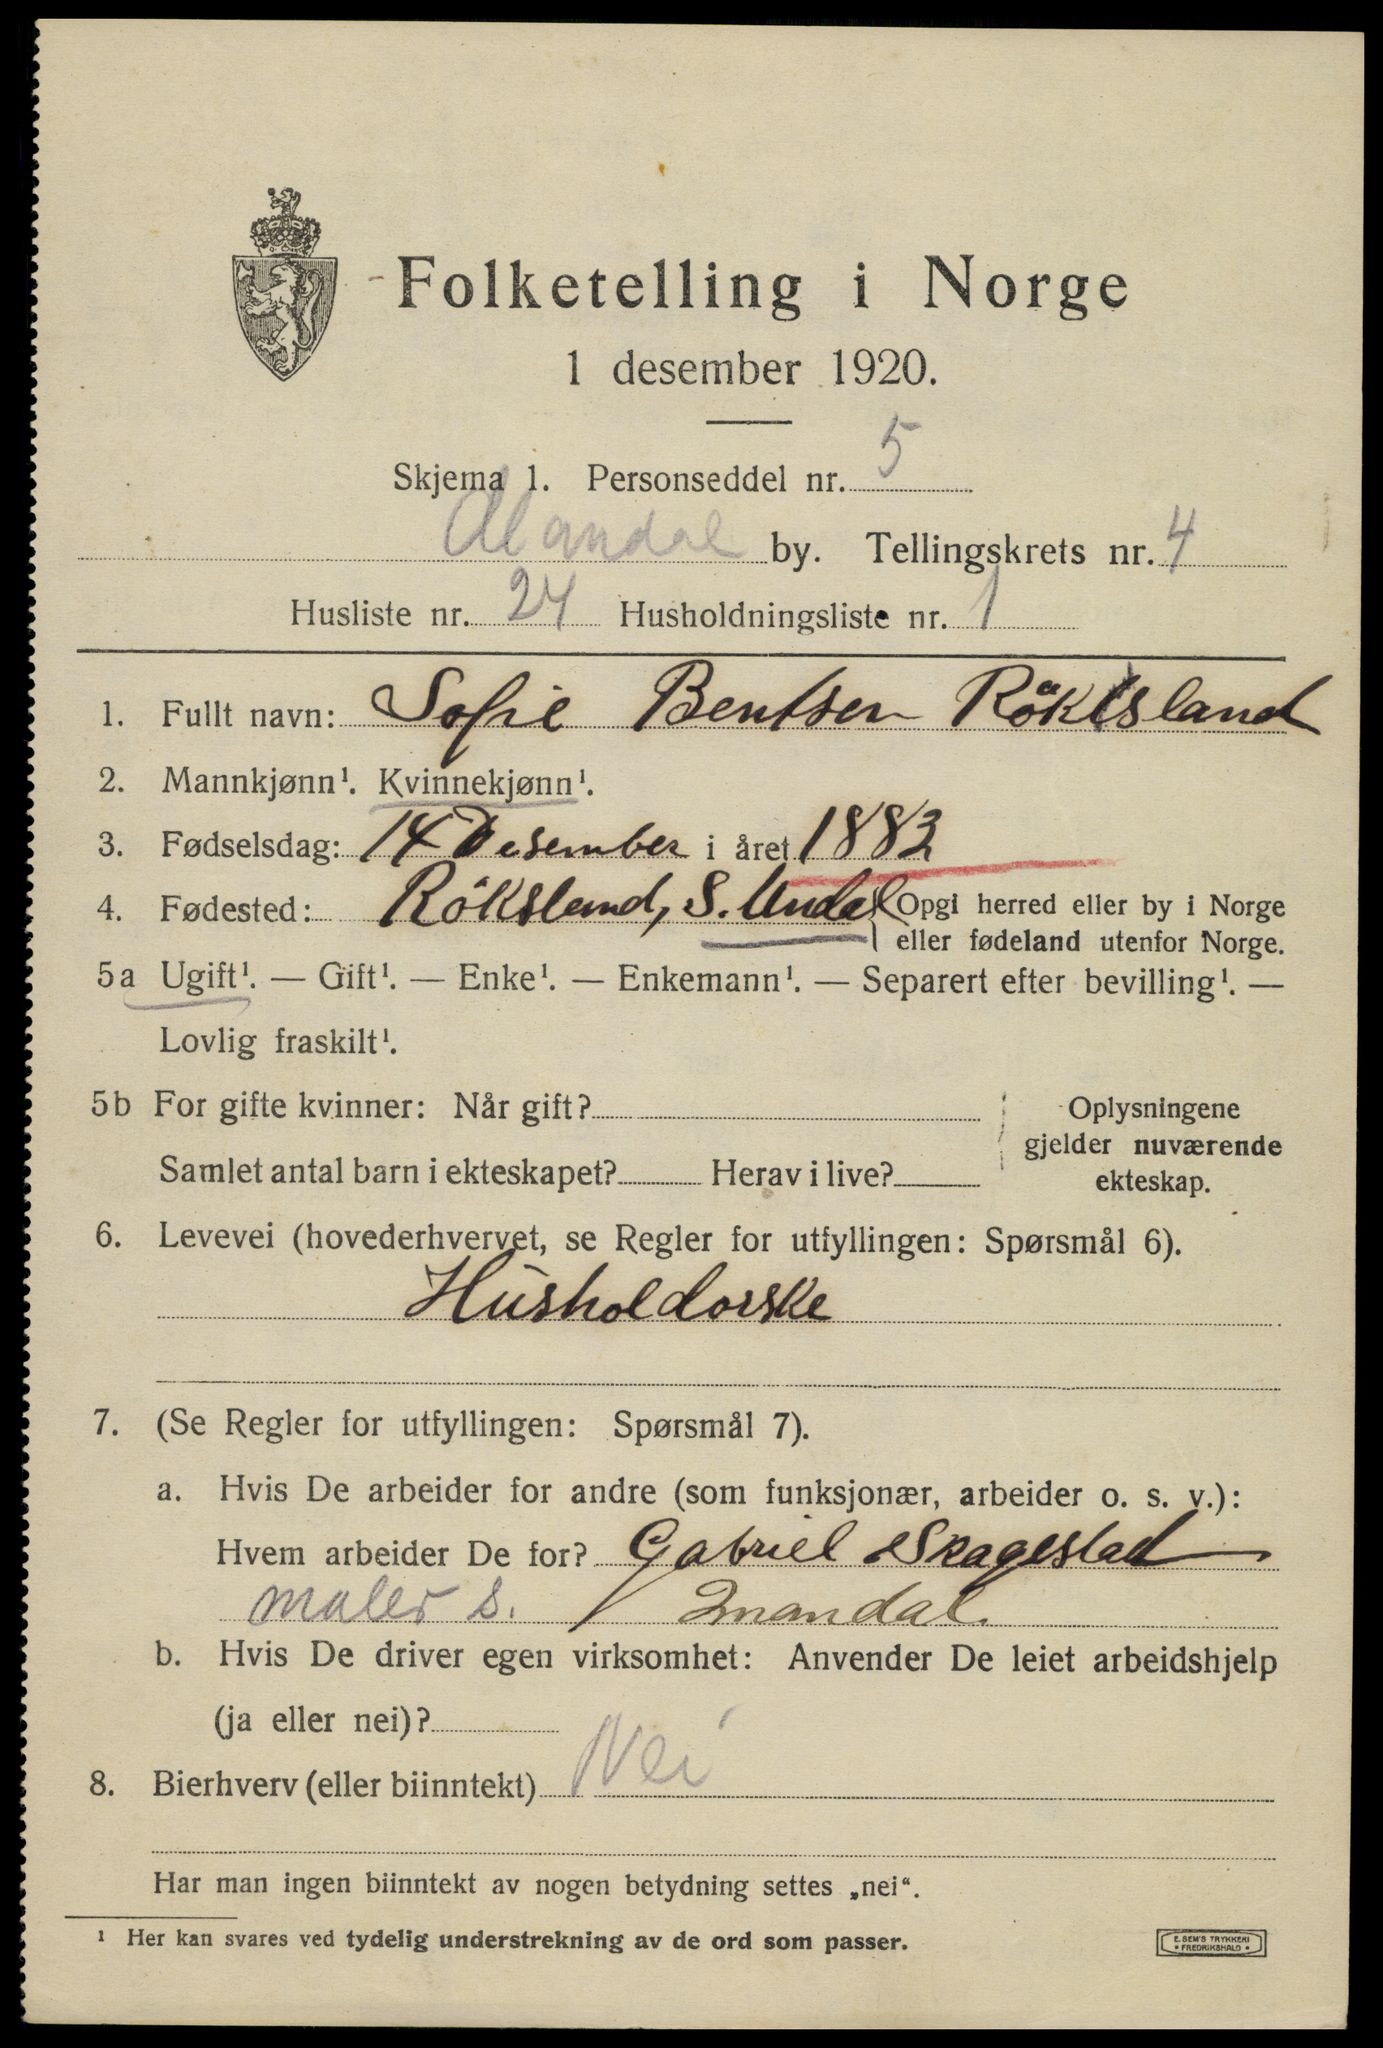 Folketelling i Norge
1 desember 1920.
Skjema 1. Personseddel nr. 5
Mandal by. Tellingskrets nr. 4
Husliste nr. 24 Husholdningsliste nr. 1
1. Fullt navn: Sofie Bentsen Röksland
2. Mannkjønn¹. Kvinnekjønn¹.
3. Fødselsdag: 14 Desember i året 1883
4. Fødested: Röksland, S. Undal { Opgi herred eller by i Norge
eller fødeland utenfor Norge.
5a Ugift¹. — Gift¹. — Enke¹. — Enkemann¹. — Separert efter bevilling¹. —
Lovlig fraskilt¹.
5b For gifte kvinner: Når gift? Oplysningene
gjelder nuværende
Samlet antal barn i ekteskapet? Herav i live? ekteskap.
6. Levevei (hovederhvervet, se Regler for utfyllingen: Spørsmål 6).
Husholdorske
7. (Se Regler for utfyllingen: Spørsmål 7).
a. Hvis De arbeider for andre (som funksjonær, arbeider o. s. v.):
Hvem arbeider De for? Gabriel Skagestad
maler s. / Mandal.
b. Hvis De driver egen virksomhet: Anvender De leiet arbeidshjelp
(ja eller nei)?
8. Bierhverv (eller biinntekt) Nei
Har man ingen biinntekt av nogen betydning settes „nei“.
¹ Her kan svares ved tydelig understrekning av de ord som passer.
E. SEM'S TRYKKERI
• FREDRIKSHALD •